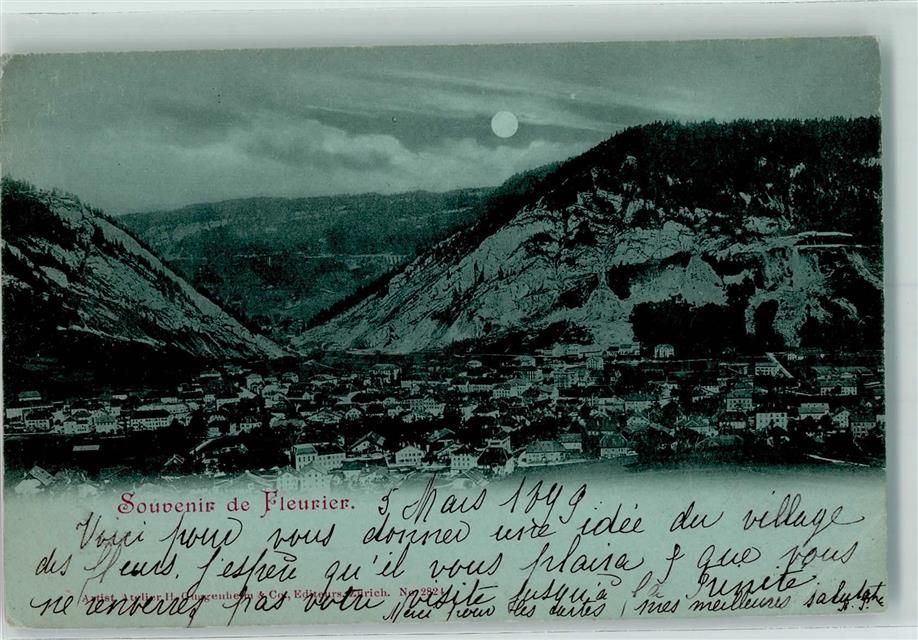 Souvenir de Fleurier. 5 Mars 1899
Voici pour vous donner une idée du village
des fleurs. J'espère qu'il vous plaira & que vous
ne renverrez pas votre visite jusqu'à la
Artist. Atelier H. Guggenheim & Co., Editeurs, Zürich. No. 2824
Merci pour les cartes, mes meilleures salutat.